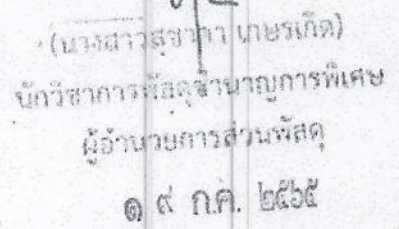 (นางสาวสุชาดา เกษรเกิด)
นักวิชาการพัสดุชำนาญการพิเศษ
ผู้อำนวยการส่วนพัสดุ
๑ ๙ ก.ค. ๒๕๖๕